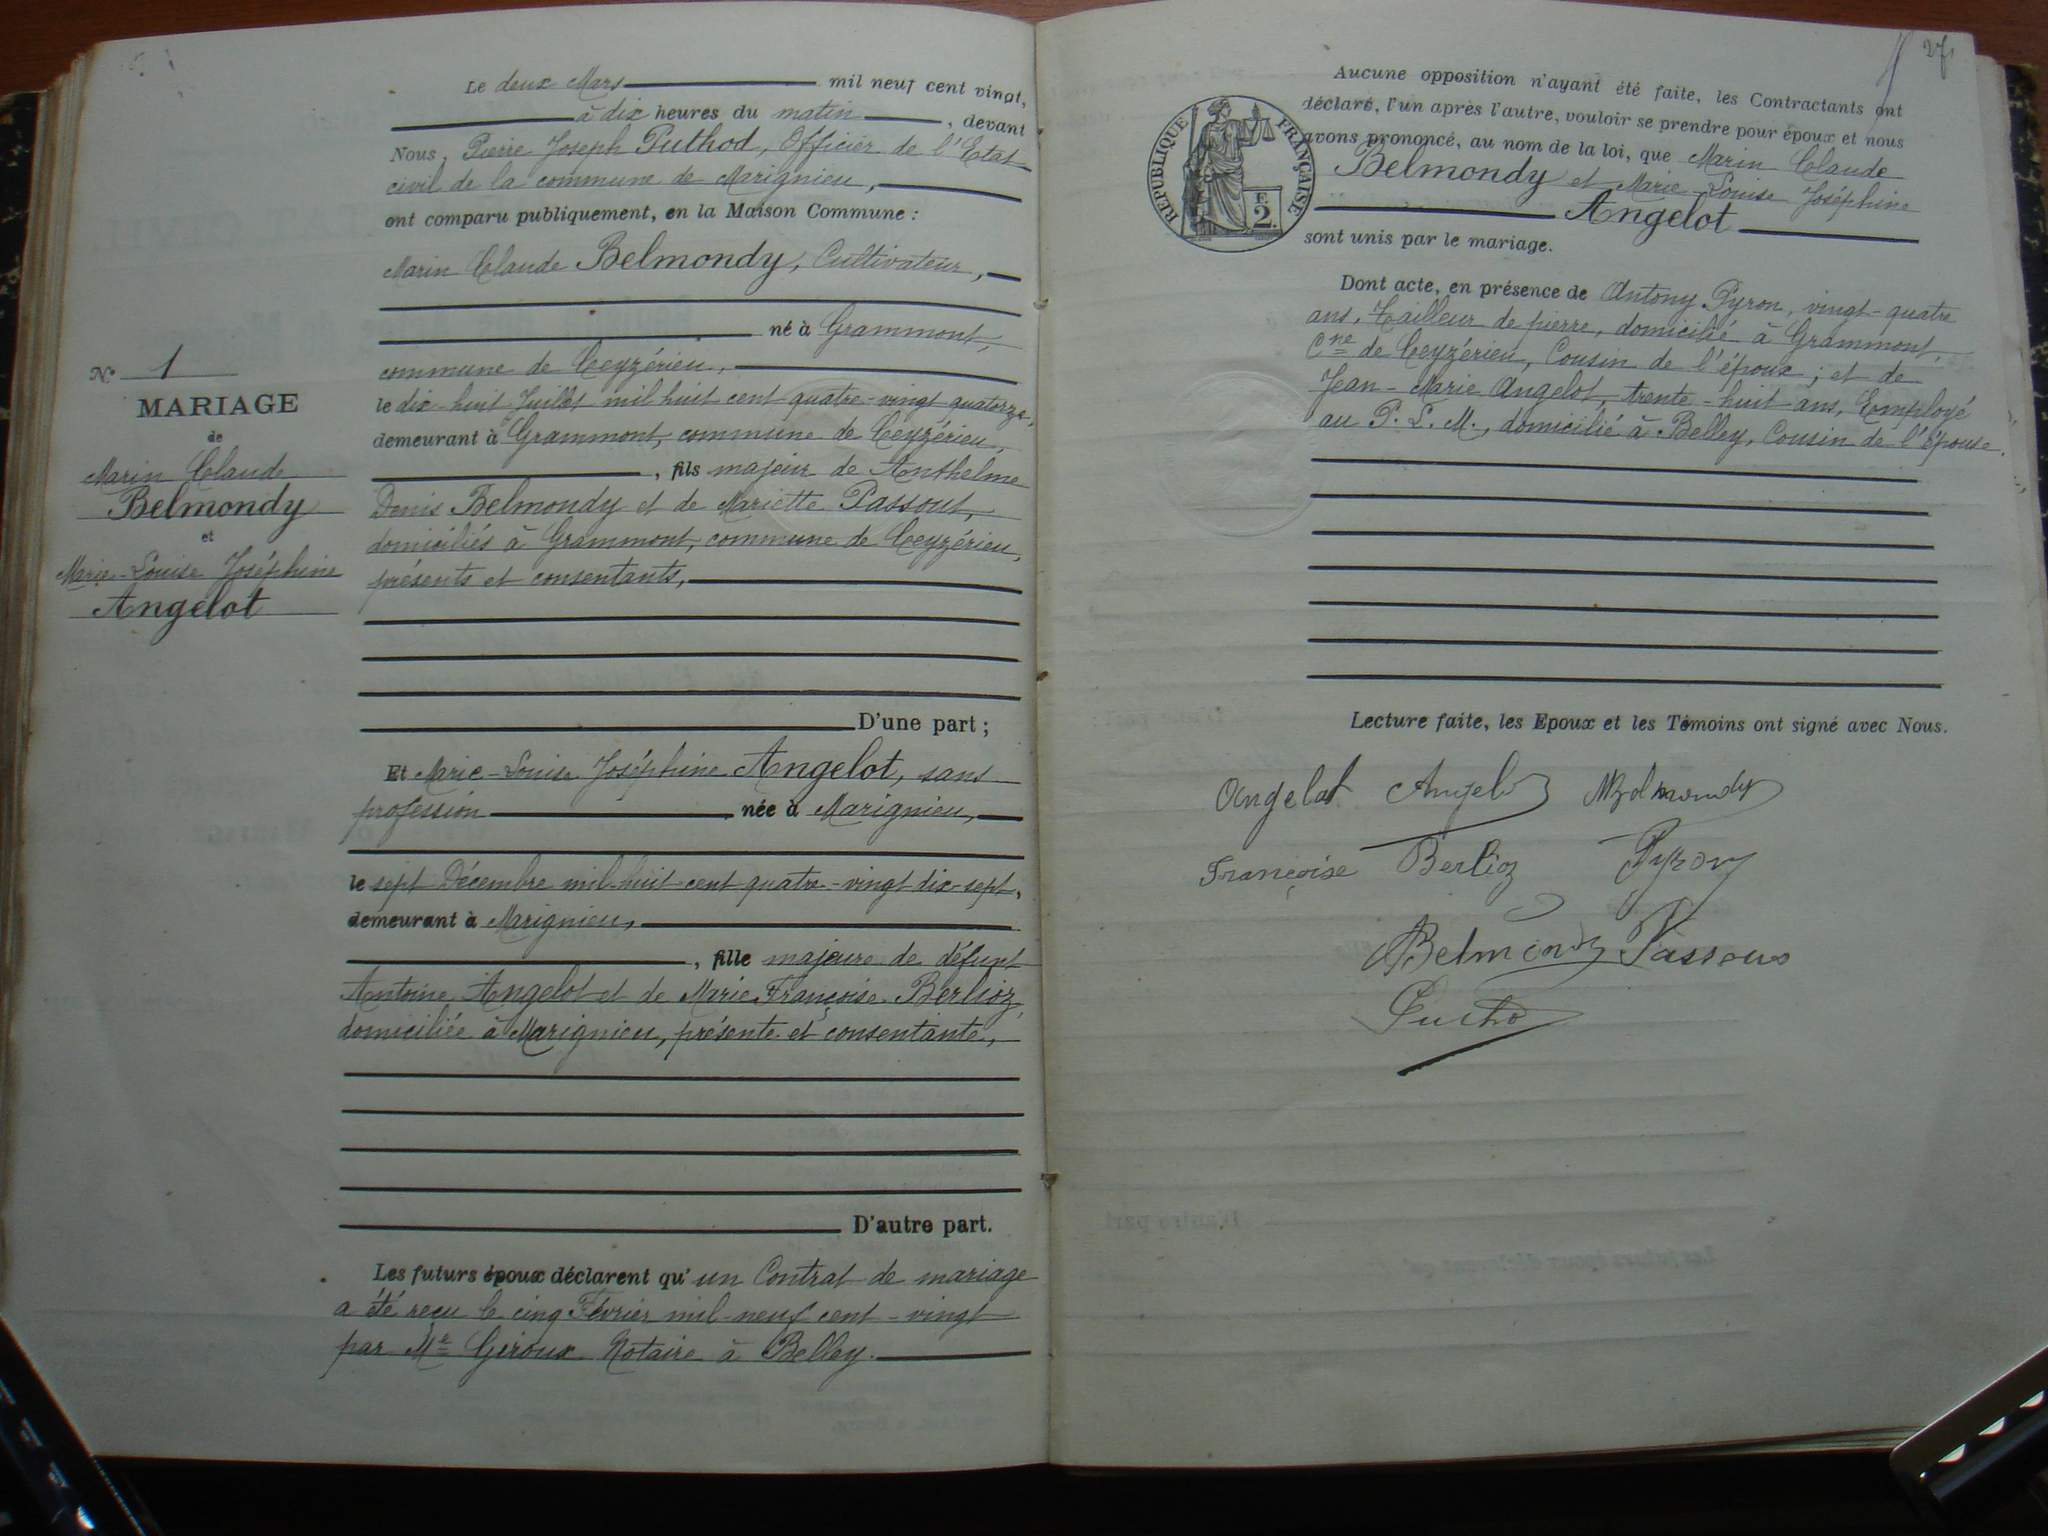 Le deux Mars mil neuf cent vingt,
à dix heures du matin, devant
Nous, Pierre Joseph Puthod, Officier de l'Etat
civil de la commune de Marignieu,
ont comparu publiquement, en la Maison Commune :
Marin Claude Belmondy, Cultivateur,
né à Grammont,
commune de Ceyzérieu,
le dix-huit Juillet mil huit cent quatre-vingt quatorze,
demeurant à Grammont, commune de Ceyzérieu,
, fils majeur de Anthelme
Denis Belmondy et de Mariette Passout,
domiciliés à Grammont, commune de Ceyzérieu,
présents et consentants,
D'une part ;
Et Marie-Louise Joséphine Angelot, sans
profession née à Marignieu,
le sept Décembre mil-huit-cent quatre-vingt dix-sept,
demeurant à Marignieu,
, fille majeure de défunt
Antoine Angelot et de Marie Françoise Berlioz,
domiciliée à Marignieu, présente et consentante,
D'autre part.
Les futurs époux déclarent qu'un Contrat de mariage
a été reçu le cinq Février mil-neuf cent-vingt
par Me Giroux Notaire à Belley.
N° 1
MARIAGE
de
Marin Claude
Belmondy
et
Marie-Louise Joséphine
Angelot
27
REPUBLIQUE FRANÇAISE
F
2.
Aucune opposition n'ayant été faite, les Contractants ont
déclaré, l'un après l'autre, vouloir se prendre pour époux et nous
avons prononcé, au nom de la loi, que Marin Claude
Belmondy et Marie-Louise Joséphine
Angelot
sont unis par le mariage.
Dont acte, en présence de Antony Pyron, vingt-quatre
ans, Tailleur de pierre, domicilié à Grammont,
Cne de Ceyzérieu, Cousin de l'époux ; et de
Jean-Marie Angelot, trente-huit ans, Employé
au P. L. M., domicilié à Belley, Cousin de l'épouse.
Lecture faite, les Epoux et les Témoins ont signé avec Nous.
Angelot Angelot MBelmondy
Françoise Berlioz Pyron
Belmondy Passout
Puthod